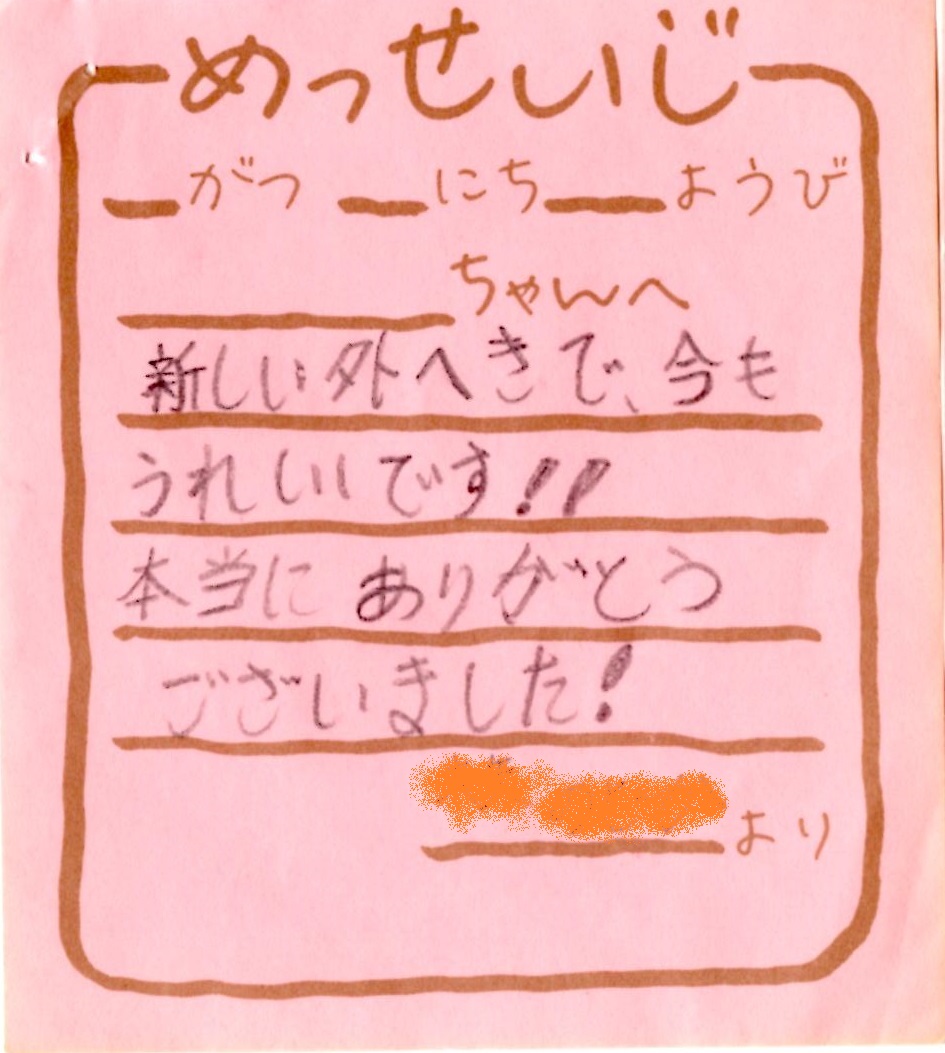 めっせいじ
がつ にち ようび
ちゃんへ
新しい外へきで、今も
うれしいです!!
本当に ありがとう
ございました!
より